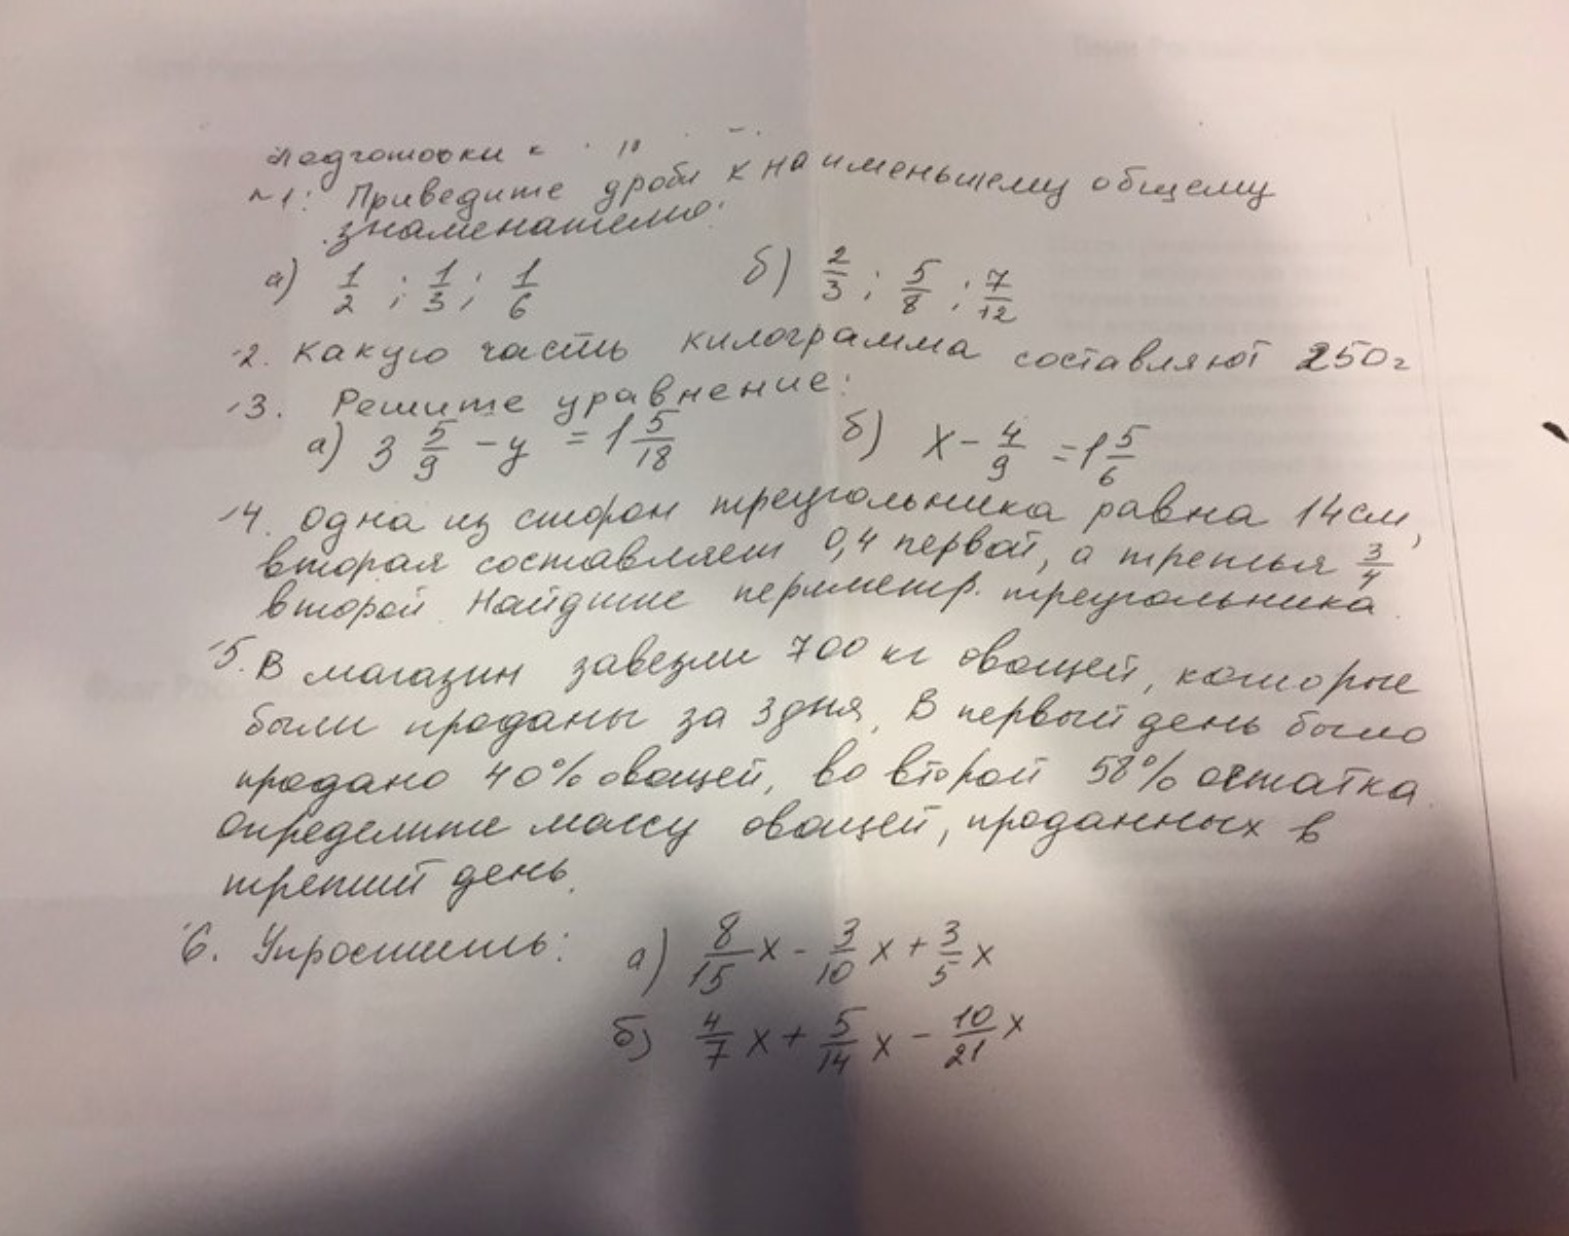 подготовки к
№1: Приведите дроби к наименьшему общему
знаменателю:
а) 1/2 ; 1/3 ; 1/6 б) 2/3 ; 5/8 ; 7/12
2. Какую часть килограмма составляют 250г
3. Решите уравнение:
а) 3 5/9 - y = 1 5/18 б) x - 4/9 = 1 5/6
4. Одна из сторон треугольника равна 14см,
вторая составляет 0,4 первой, а третья 3/4
второй. Найдите периметр. треугольника.
5. В магазин завезли 700 кг овощей, которые
были проданы за 3 дня. В первый день было
продано 40% овощей, во второй 58% остатка.
Определите массу овощей, проданных в
третий день.
6. Упростить: а) 8/15 x - 3/10 x + 3/5 x
б) 4/7 x + 5/14 x - 10/21 x